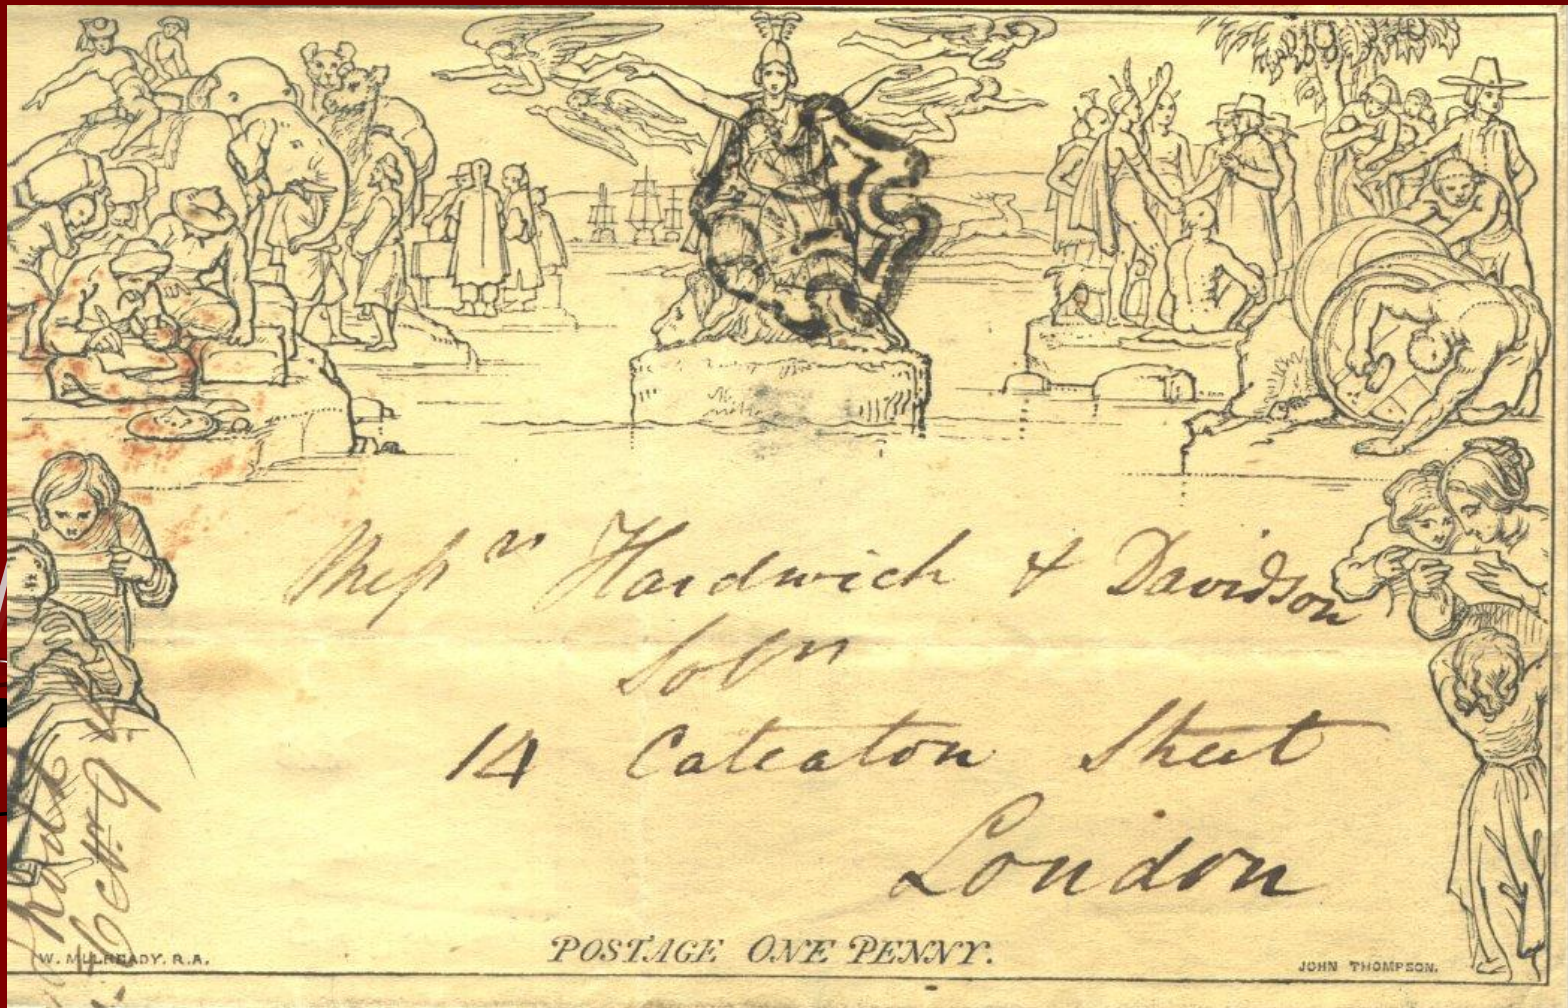 Messrs Hardwick & Davidson
Solrs
14 Cateaton Street
London
Oct 9
W. MULREADY. R.A.
POSTAGE ONE PENNY.
JOHN THOMPSON.